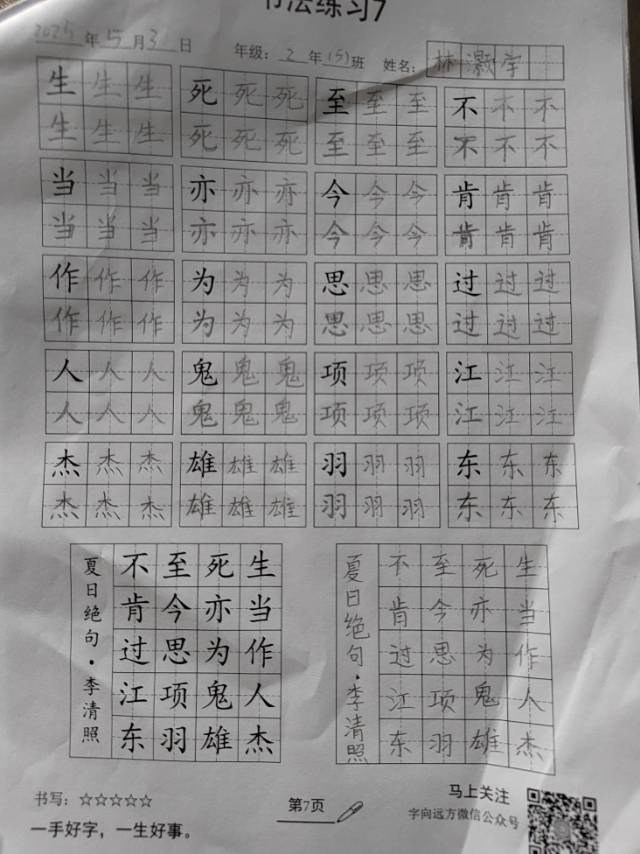 书法练习7
2025年5月3日 年级：2年(5)班 姓名：林灏学
生生生 死死死 至至至 不不不
生生生 死死死 至至至 不不不
当当当 亦亦亦 今今今 肯肯肯
当当当 亦亦亦 今今今 肯肯肯
作作作 为为为 思思思 过过过
作作作 为为为 思思思 过过过
人人人 鬼鬼鬼 项项项 江江江
人人人 鬼鬼鬼 项项项 江江江
杰杰杰 雄雄雄 羽羽羽 东东东
杰杰杰 雄雄雄 羽羽羽 东东东
生当作人杰
死亦为鬼雄
至今思项羽
不肯过江东
夏日绝句·李清照
生当作人杰
死亦为鬼雄
至今思项羽
不肯过江东
夏日绝句·李清照
书写：☆☆☆☆☆
一手好字，一生好事。
第7页
马上关注
字向远方微信公众号